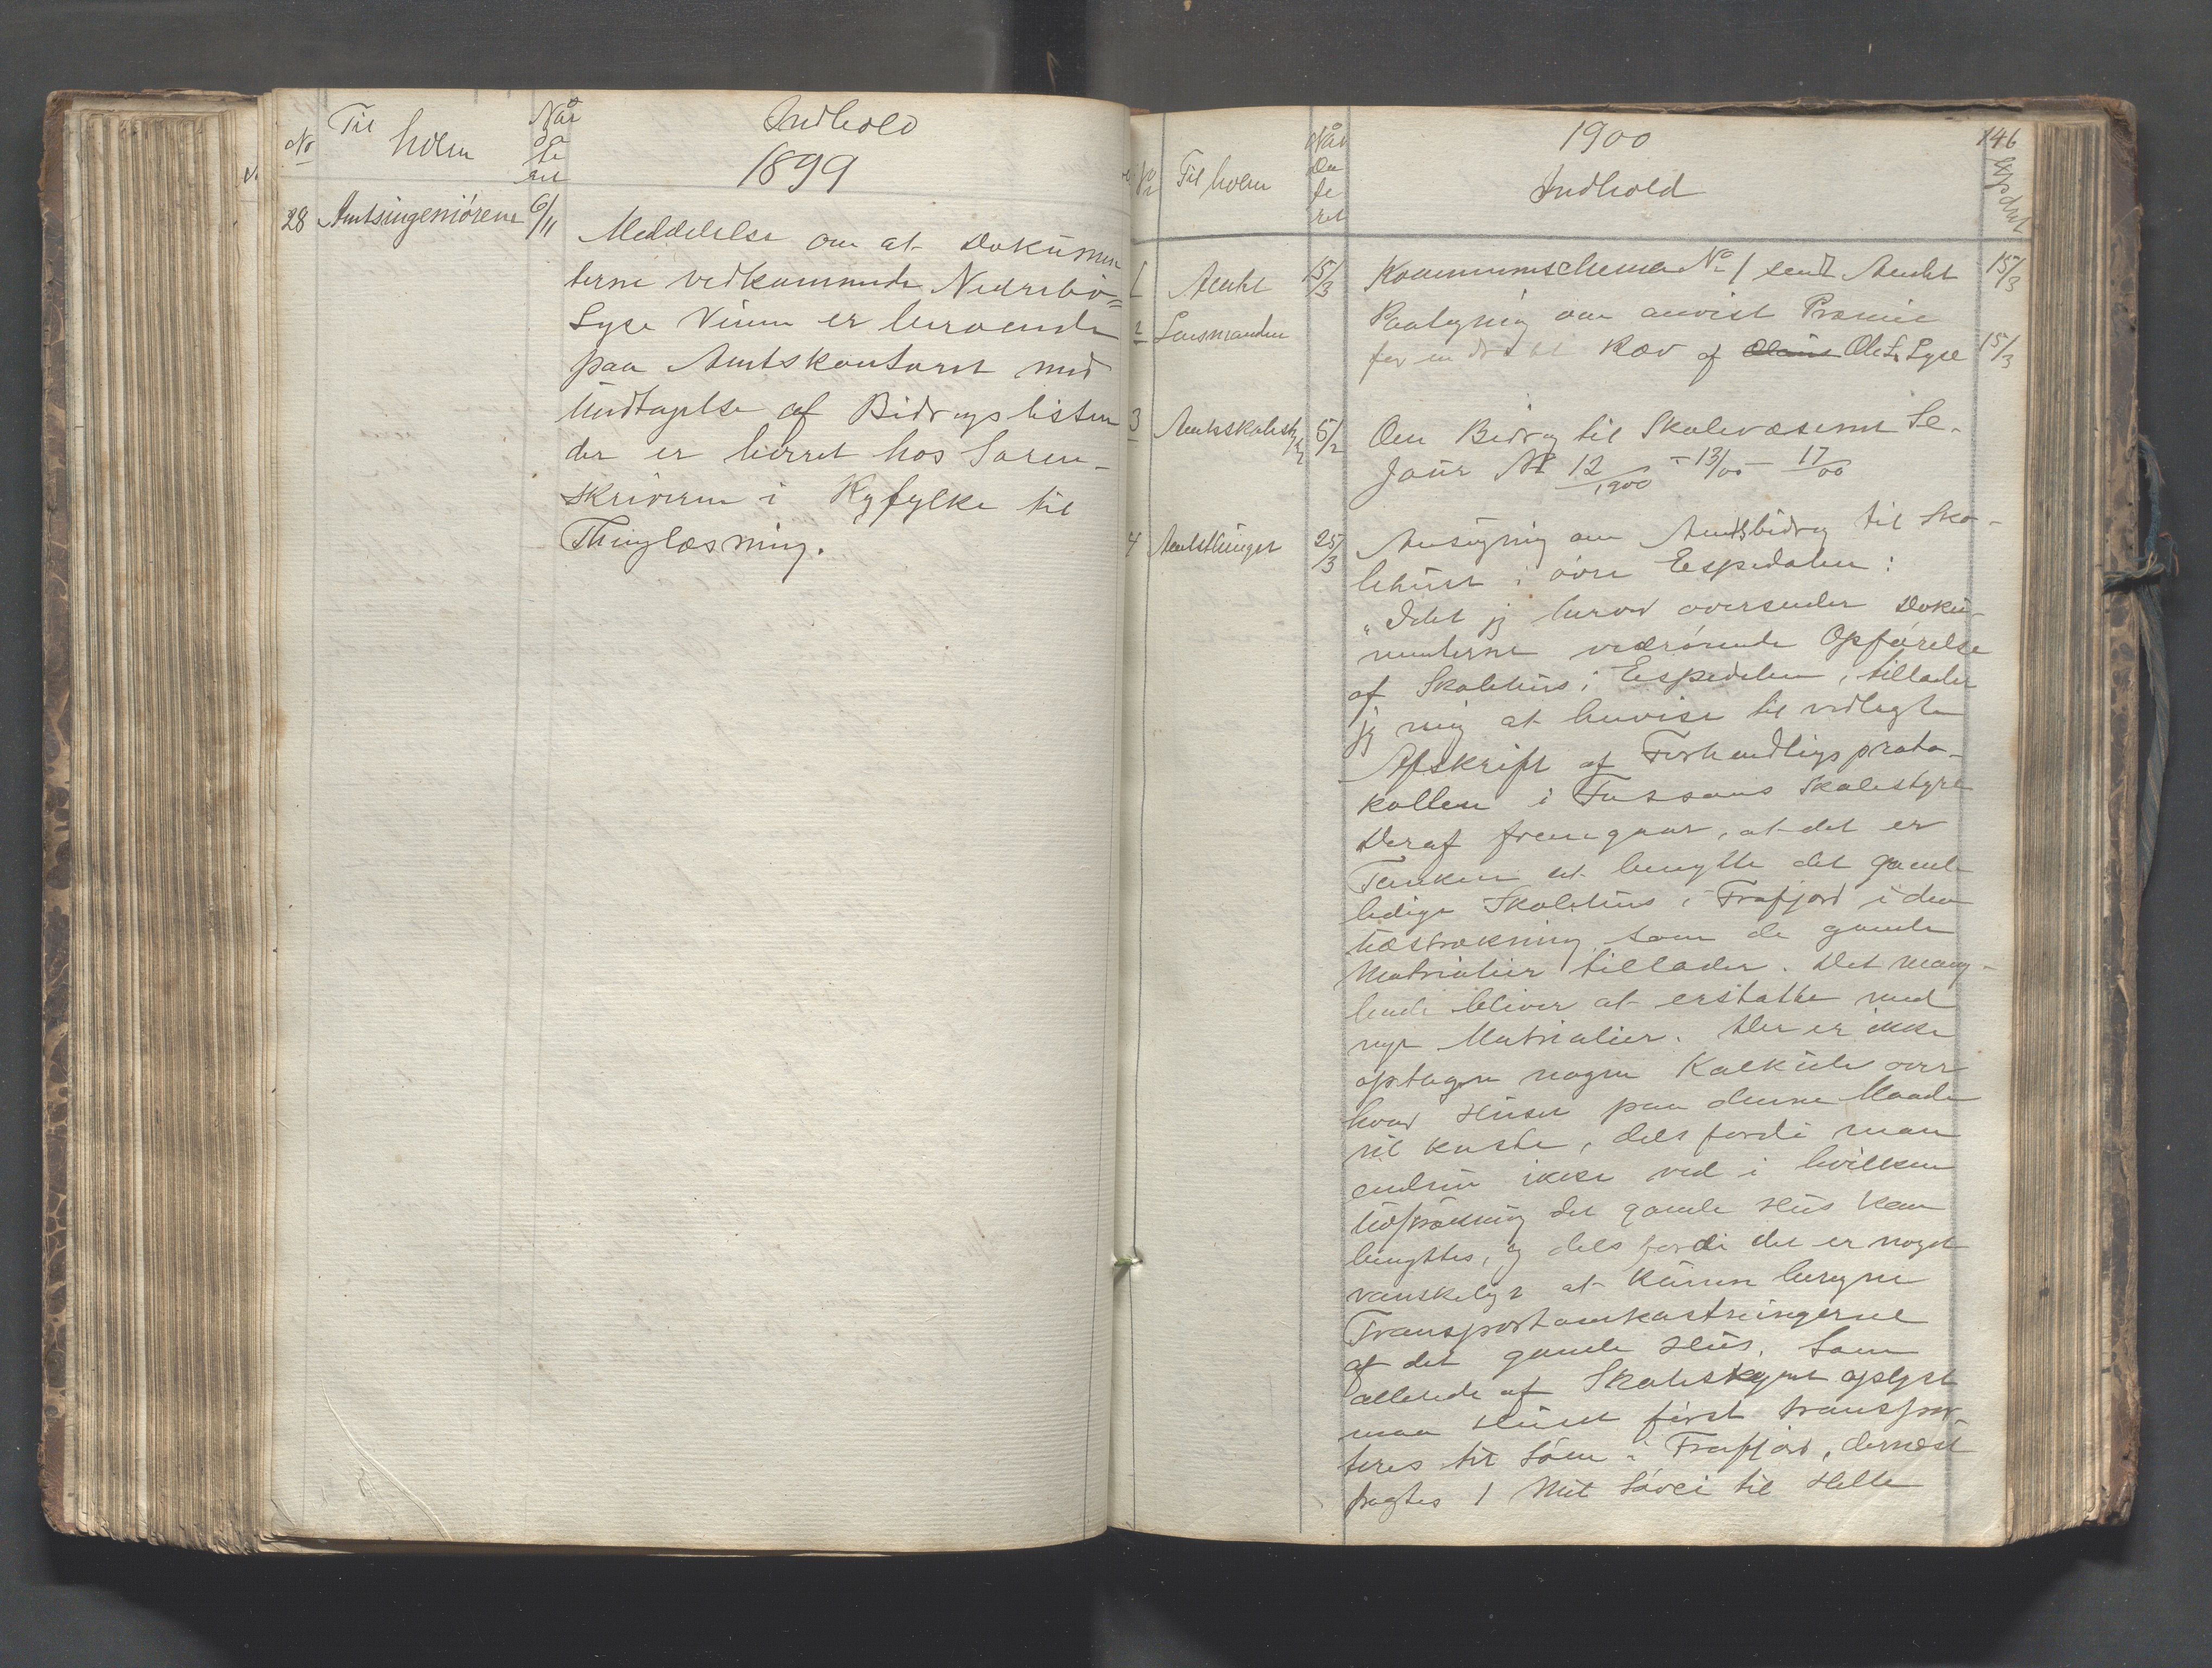 No
Til hvem
Når
da
te
ret
Indhold
1899
28 Amtsingeniørene 6/11 Meddelelse om at Dokumen
terne vedkommende Nedrebø=
Lyse Veien er beroende
paa Amtskontoret med
Undtagelse af Bidragslisten
der er beroet hos Soren-
skriveren i Ryfylke til
Thinglæsning.
146
1900
No
Til hvem
Når
Da
te
ret
Indhold
Exp dat
1 Amtet 15/3 Kommuneschema No 1 sendt Amtet 15/3
2 Lensmanden Paategning om anvist Præmie
for en dræbt Ræv af Ole L. Lyse 15/3
3 Amtsskolest 5/2 Om Bidrag til Skolevæsenet Se.
Jour No 12/1900 - 13/00 - 17/00
4 Amtsthinget 25/3 Ansøgning om Amtsbidrag til Sko-
lehuset i øvre Espedalen:
"Idet jeg herved oversender Doku-
menterne vedrørende Opførelse
af Skolehus i Espedalen, tillader
jeg mig at henvise til vedlagte
Afskrift af Forhandligsproto-
kollen i Fossans Skolestyre
Deraf fremgaar, at det er
Tanken at benytte det gamle
ledige Skolehus i Frafjord i den
Udstrækning som de gamle
Materialier tillader. Det mang-
lende bliver at erstatte med
nye Materialier. Der er ikke
optagen nogen Kalkule over
hvad Huset paa denne Maade
vil koste, dels fordi man
endnu ikke ved i hvilken
Udstrækning det gamle Hus kan
benyttes, og dels fordi det er noget
vanskeligt at kunne beregne
Transportomkostningerne
af det gamle Hus. Som
allerede af Skolestyret oplyst
maa Huset først transpor-
teres til Søen i Frafjord, dernæst
fragtes 1 Mil Søvei til Helle